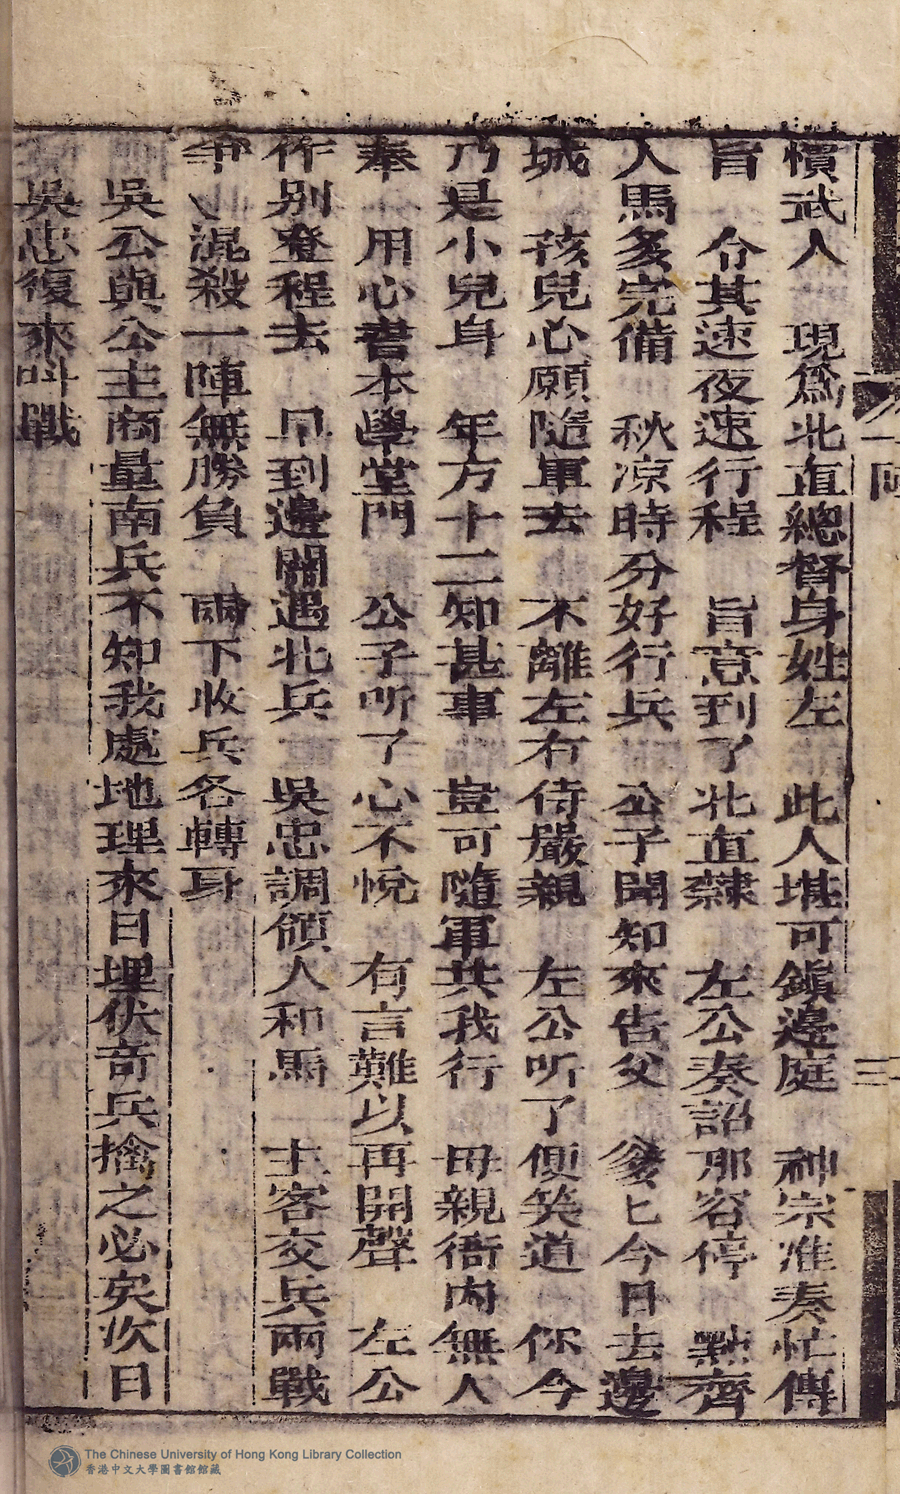 慣武人　現爲北直總督身姓左　此人堪可鎭邊庭　神宗准奏忙傳
旨　令其速夜速行程　旨意到了北直隸　左公奏詔那容停　㸃齊
人馬多完備　秋凉時分好行兵　公子聞知來告父　爹匕今日去邊
城　孩兒心願隨軍去　不離左右侍嚴親　左公听了便笑道　你今
乃是小兒身　年方十二知甚事　豈可隨軍共我行　母親衙內無人
奉　用心書本學堂門　公子听了心不悅　有言難以再開聲　左公
作別登程去　早到邊關遇北兵　吳忠調領人和馬　主客交兵兩戰
爭　混殺一陣無勝負　兩下收兵各轉身
吳公與公主商量南兵不知我處地理來日埋伏奇兵擒之必矣次日
吳忠復來叫戰
三
The Chinese University of Hong Kong Library Collection
香港中文大學圖書館館藏